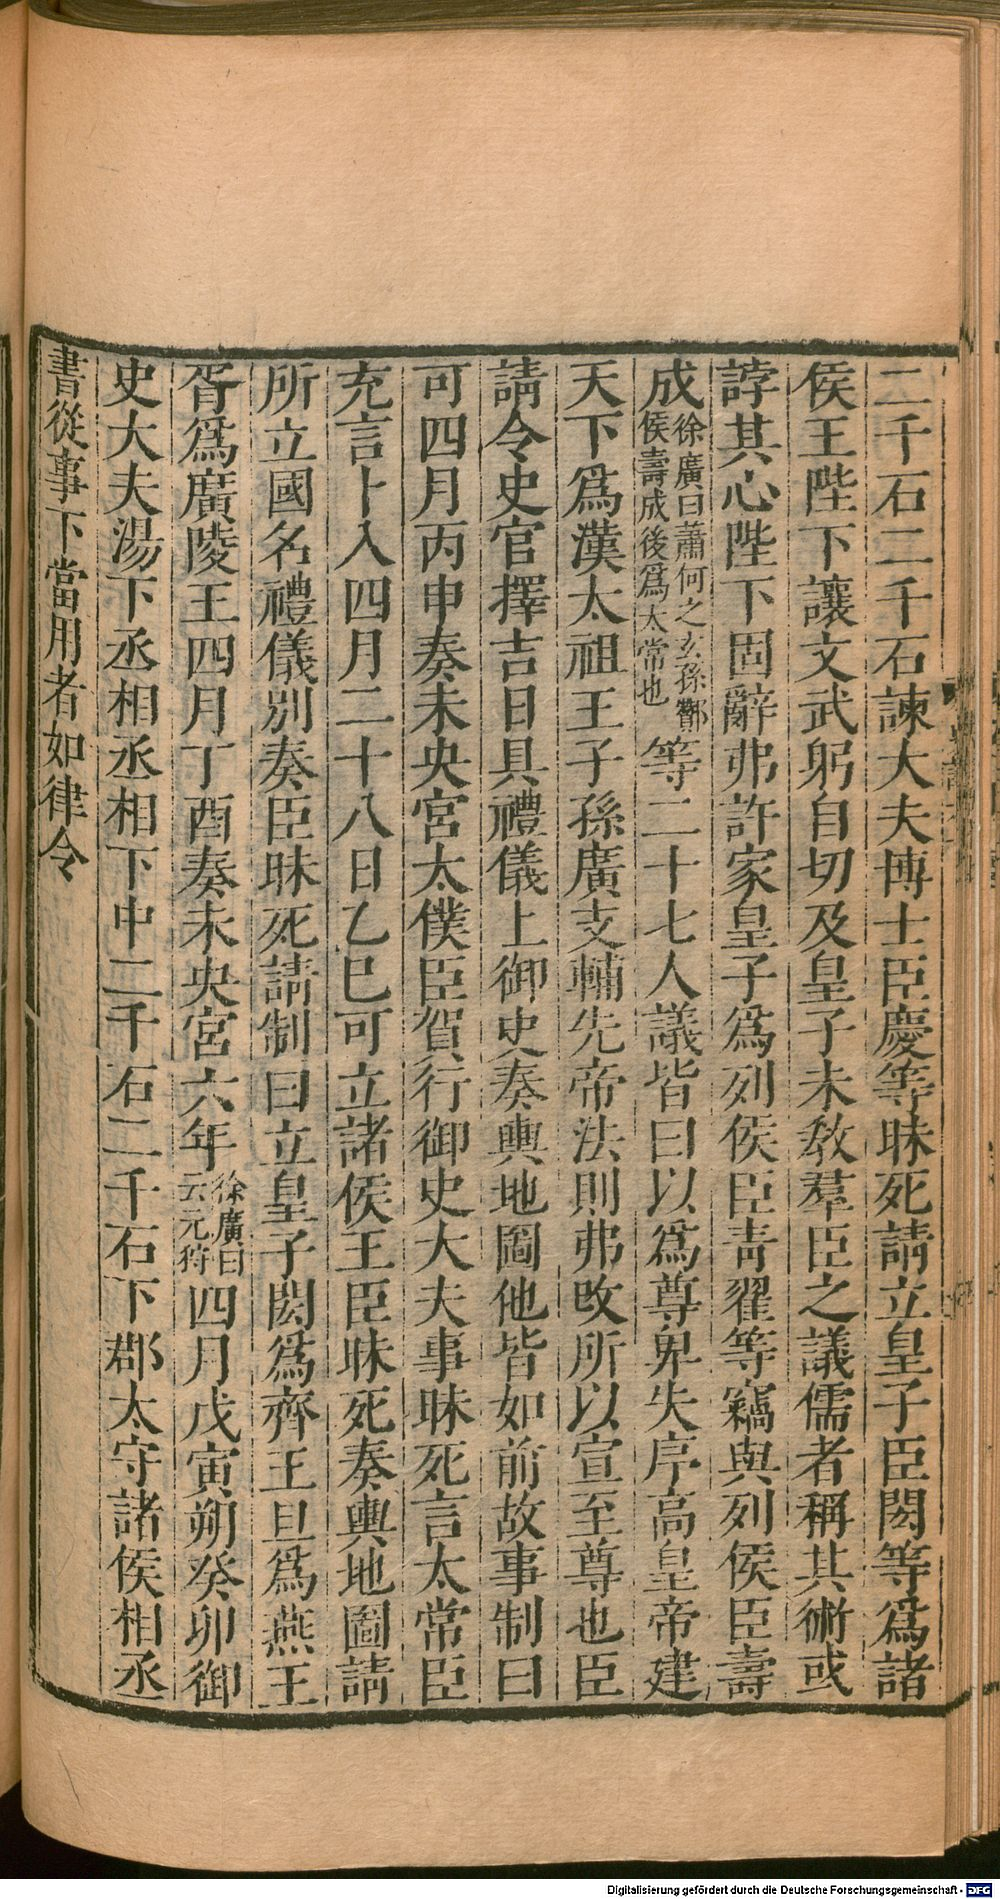 二千石二千石諫大夫博士臣慶等昧死請立皇子臣閎等為諸
侯王陛下讓文武躬自切及皇子未教羣臣之議儒者稱其術或
誖其心陛下固辭弗許家皇子為列侯臣青翟等竊與列侯臣壽
成徐廣曰蕭何之玄孫酇侯壽成後為太常也等二十七人議皆曰以為尊卑失序高皇帝建
天下為漢太祖王子孫廣支輔先帝法則弗改所以宣至尊也臣
請令史官擇吉日具禮儀上御史奏輿地圖他皆如前故事制曰
可四月丙申奏未央宮太僕臣賀行御史大夫事昧死言太常臣
充言卜入四月二十八日乙巳可立諸侯王臣昧死奏輿地圖請
所立國名禮儀別奏臣昧死請制曰立皇子閎為齊王旦為燕王
胥為廣陵王四月丁酉奏未央宮六年徐廣曰云元狩四月戊寅朔癸卯御
史大夫湯下丞相丞相下中二千石二千石下郡太守諸侯相丞
書從事下當用者如律令
Digitalisierung gefördert durch die Deutsche Forschungsgemeinschaft - DFG